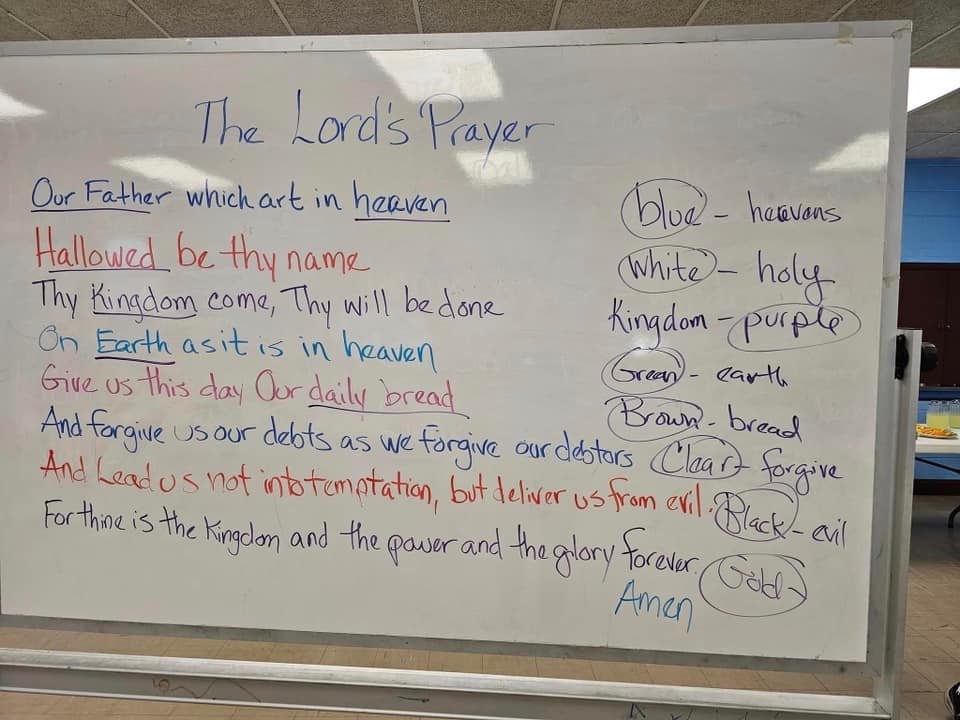 The Lord's Prayer
Our Father which art in heaven
Hallowed be thy name
Thy Kingdom come, Thy will be done
On Earth as it is in heaven
Give us this day Our daily bread
And forgive us our debts as we forgive our debtors
And Lead us not into temptation, but deliver us from evil.
For thine is the Kingdom and the power and the glory forever.
Amen
blue - heavens
White - holy
Kingdom - purple
Green - earth
Brown - bread
Clear - forgive
Black - evil
Gold -